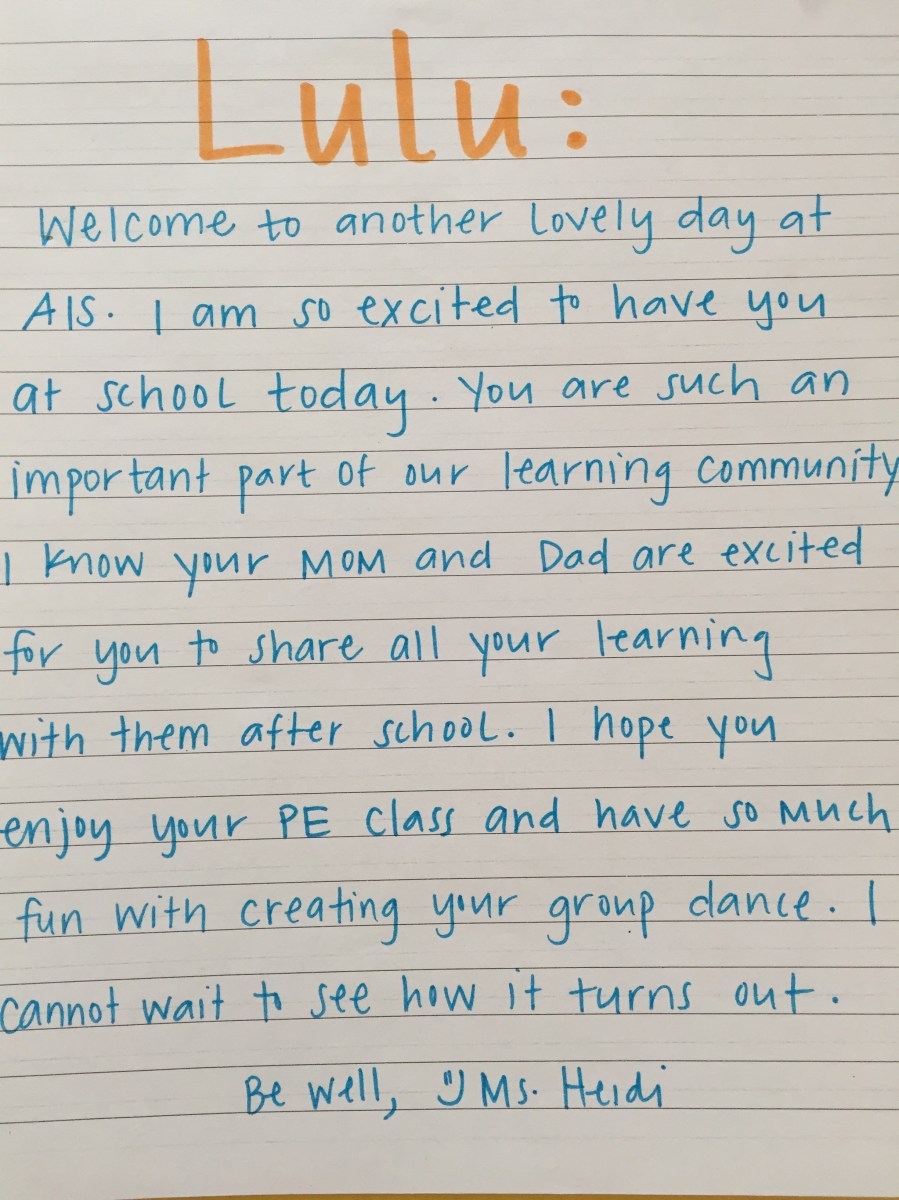 Lulu:
Welcome to another lovely day at
AIS. I am so excited to have you
at school today. You are such an
important part of our learning community
I know your Mom and Dad are excited
for you to share all your learning
with them after school. I hope you
enjoy your PE class and have so much
fun with creating your group dance. I
cannot wait to see how it turns out.
Be well, :) Ms. Heidi